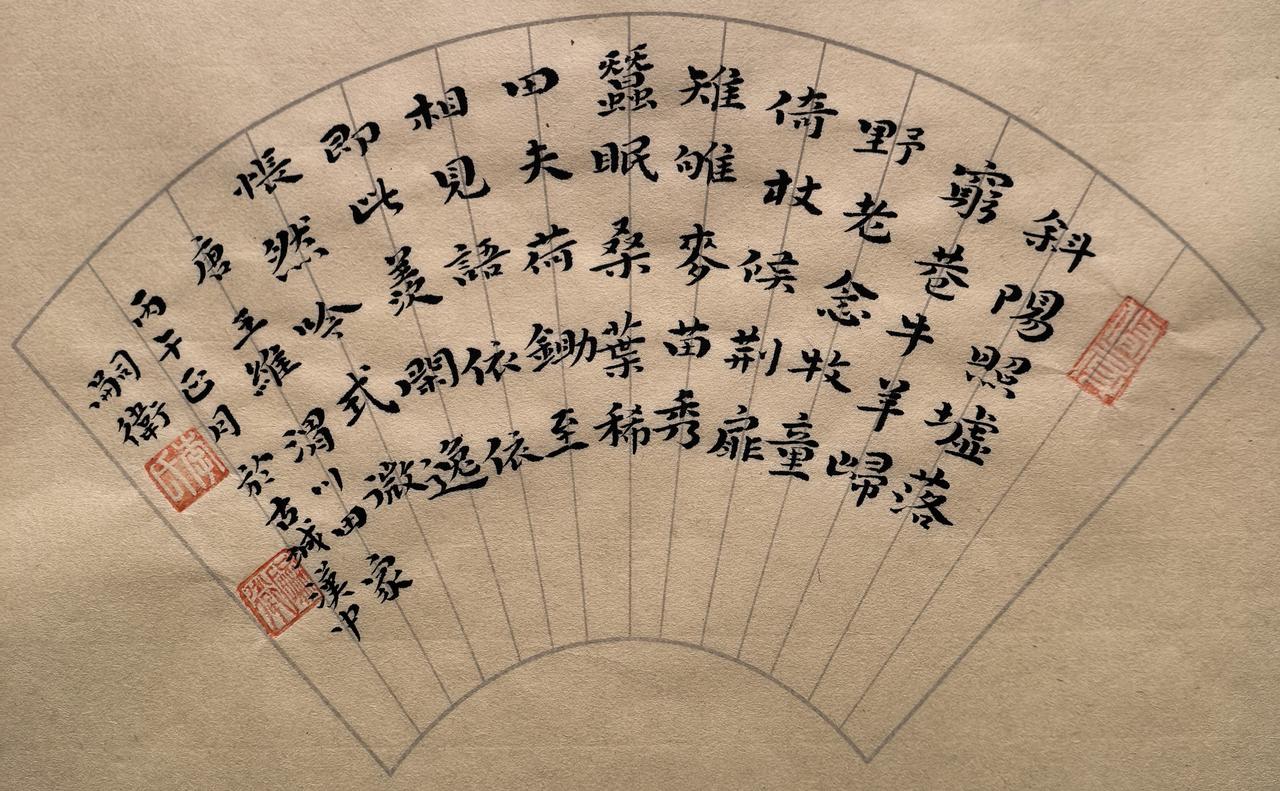 斜陽照墟落
窮巷牛羊歸
野老念牧童
倚杖候荊扉
雉雊麥苗秀
蠶眠桑葉稀
田夫荷鋤至
相見語依依
即此羨閑逸
悵然吟式微
唐王維渭川田家
丙午正月於古城漢中
嗣衛